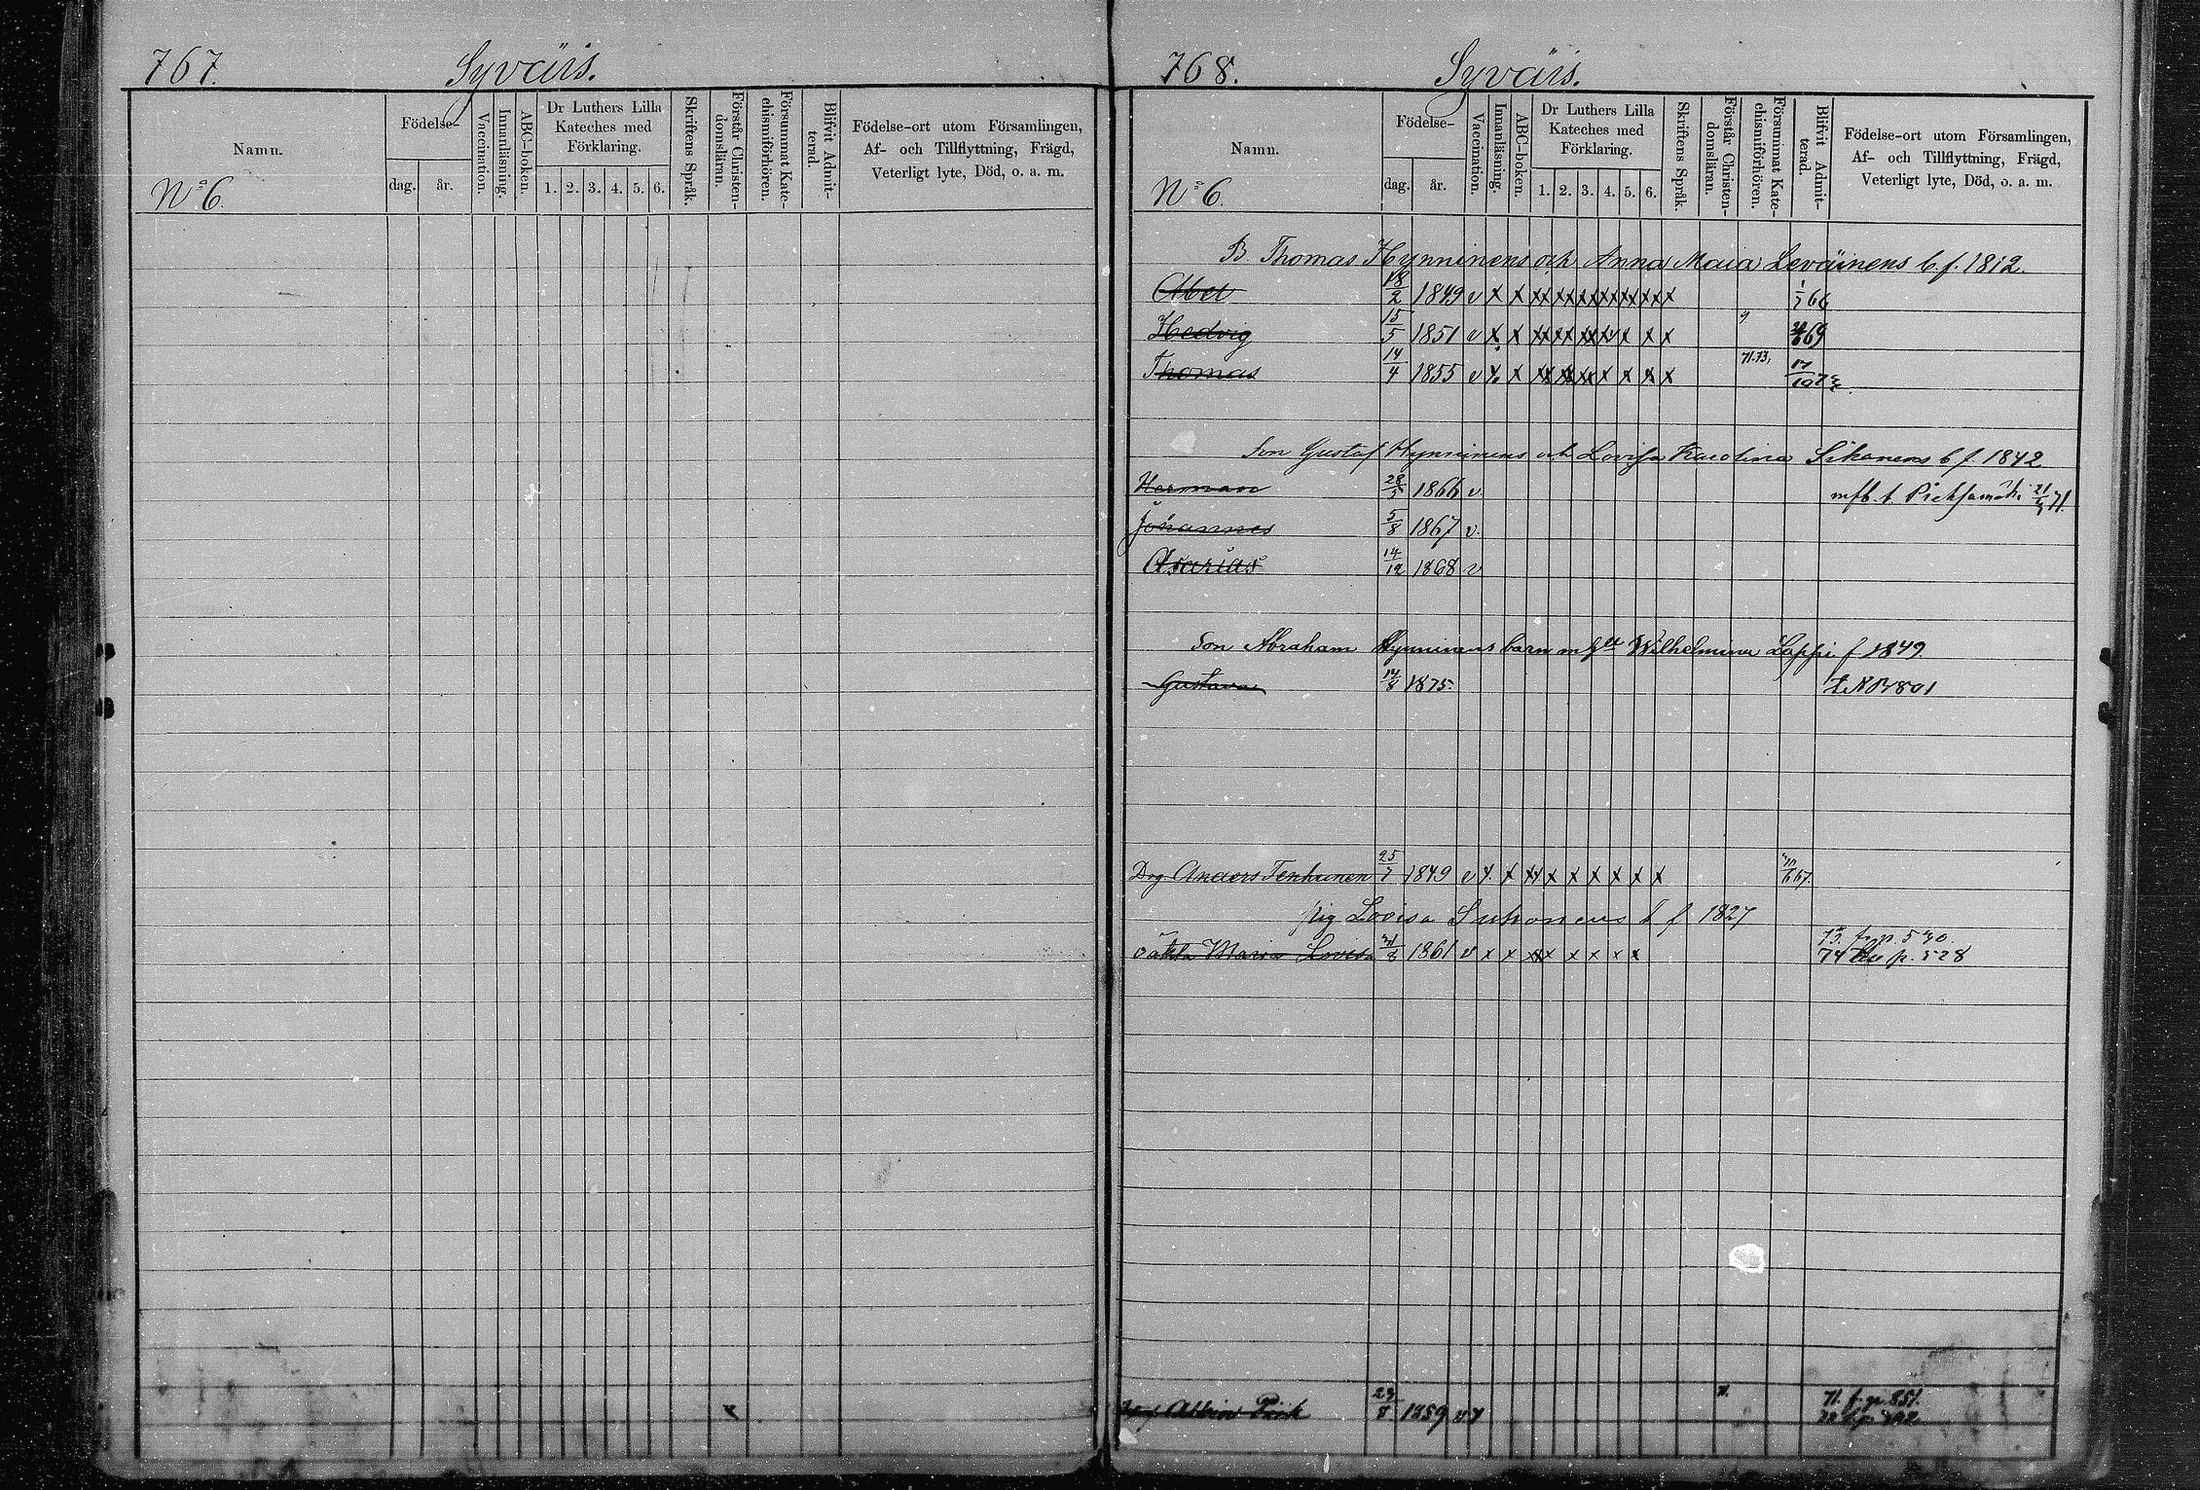 767. Syväis.
Namn.
Födelse-
dag.
år.
Vaccination.
Innanläsning.
ABC-boken.
Dr Luthers Lilla
Kateches med
Förklaring.
1. 2. 3. 4. 5. 6.
Skriftens Språk.
Förstår Christen-
domsläran.
Försummat Kate-
chismiförhören.
Blifvit Admit-
terad.
Födelse-ort utom Församlingen,
Af- och Tillflyttning, Frägd,
Veterligt lyte, Död, o. a. m.
No 6.
768. Syväis.
Namn.
Födelse-
dag.
år.
Vaccination.
Innanläsning.
ABC-boken.
Dr Luthers Lilla
Kateches med
Förklaring.
1. 2. 3. 4. 5. 6.
Skriftens Språk.
Förstår Christen-
domsläran.
Försummat Kate-
chismiförhören.
Blifvit Admit-
terad.
Födelse-ort utom Församlingen,
Af- och Tillflyttning, Frägd,
Veterligt lyte, Död, o. a. m.
No 6.
B. Thomas Hynninens och Anna Maia Leväinens b. f. 1812.
Abel 18/2 1849 v x x xx xx xx xx xx xx x 1/7 66
Hedvig 15/5 1851 v x x xx xx xx x x x 9 69
Thomas 14/4 1855 v x x x x x x 71.73,
Son Gustaf Hynninens och Lovisa Karolina Sikanens b f. 1842
Herman 28/5 1866 v. mfb t. Pieksamäki 71.
Johannes 5/8 1867 v.
Asarias 14/12 1868 v
Son Abraham Hynninens barn m Wilhelmina Lappi f 1849.
Gustava 1875. 801
Drg Anders Tenhunen 25/7 1849 v x x x x x x x x 67.
Pig Lovisa f 1827
Maria Lovisa 1861 v x x x x x x x 73. fr p. 530
74 p. 528
Albin 1859 v x 71. fr p. 851.